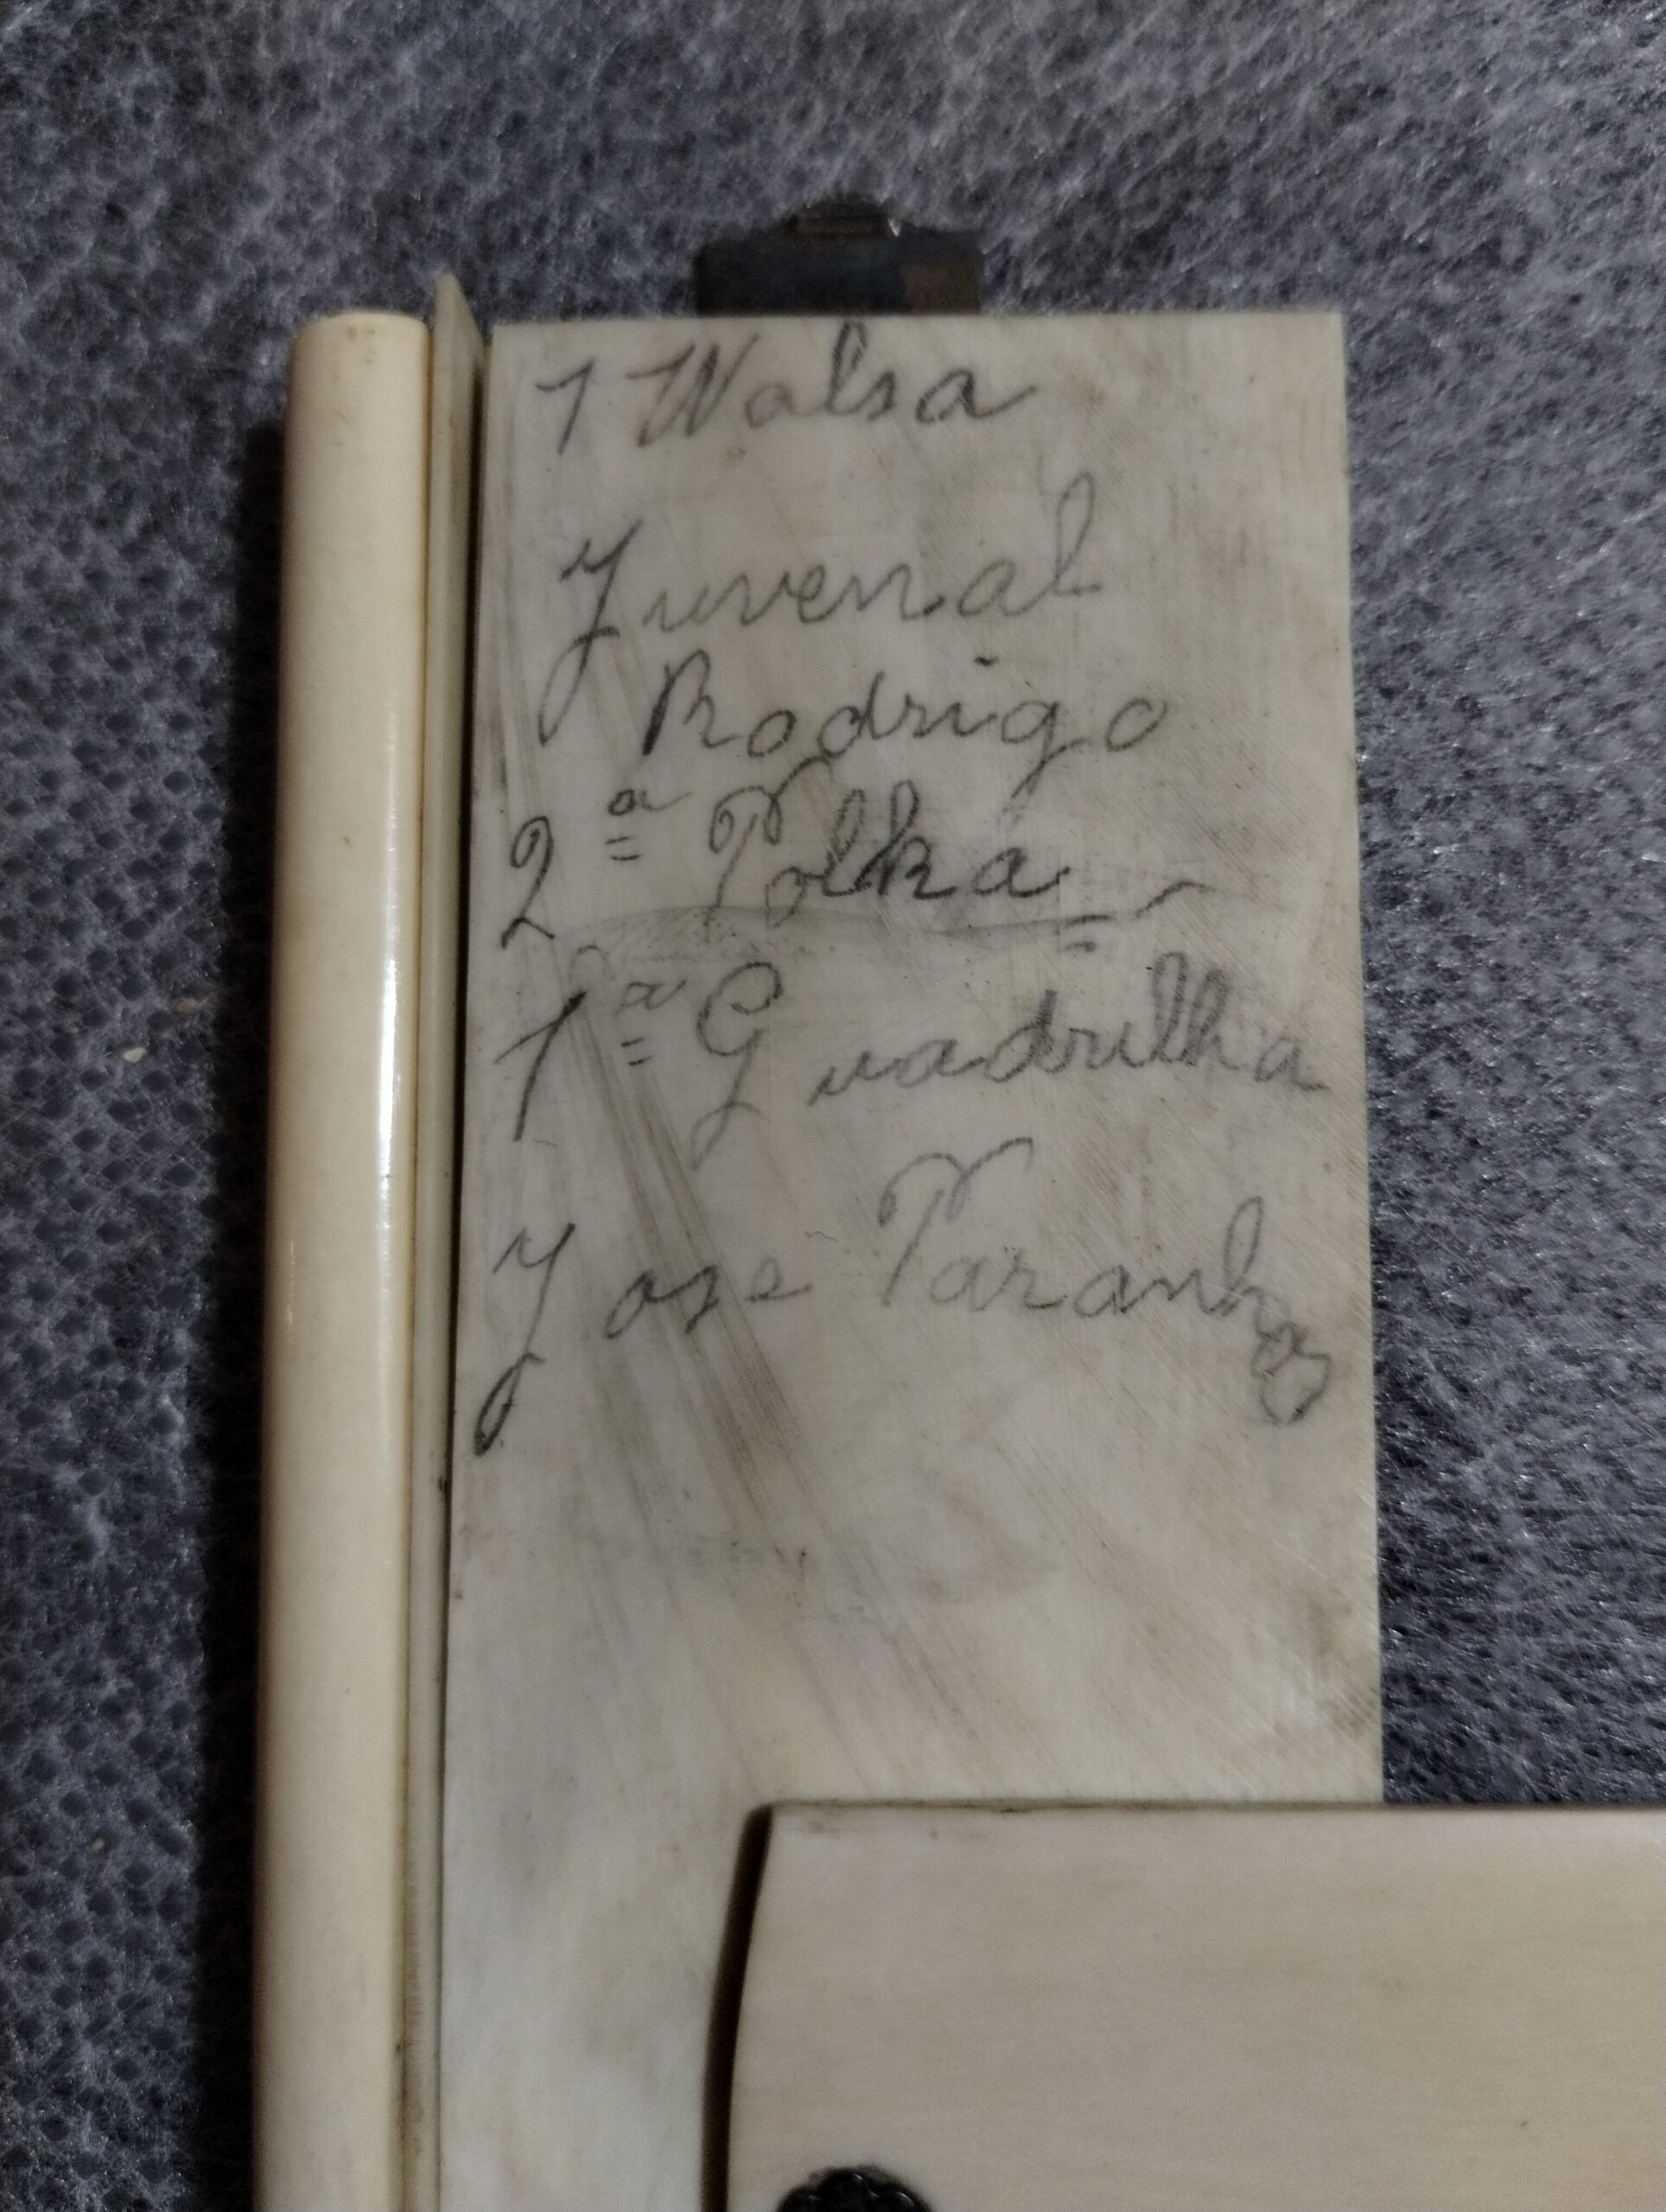 1 Walsa
Juvenal
Rodrigo
2ª Polka
1ª Quadrilha
Jose Paranhos